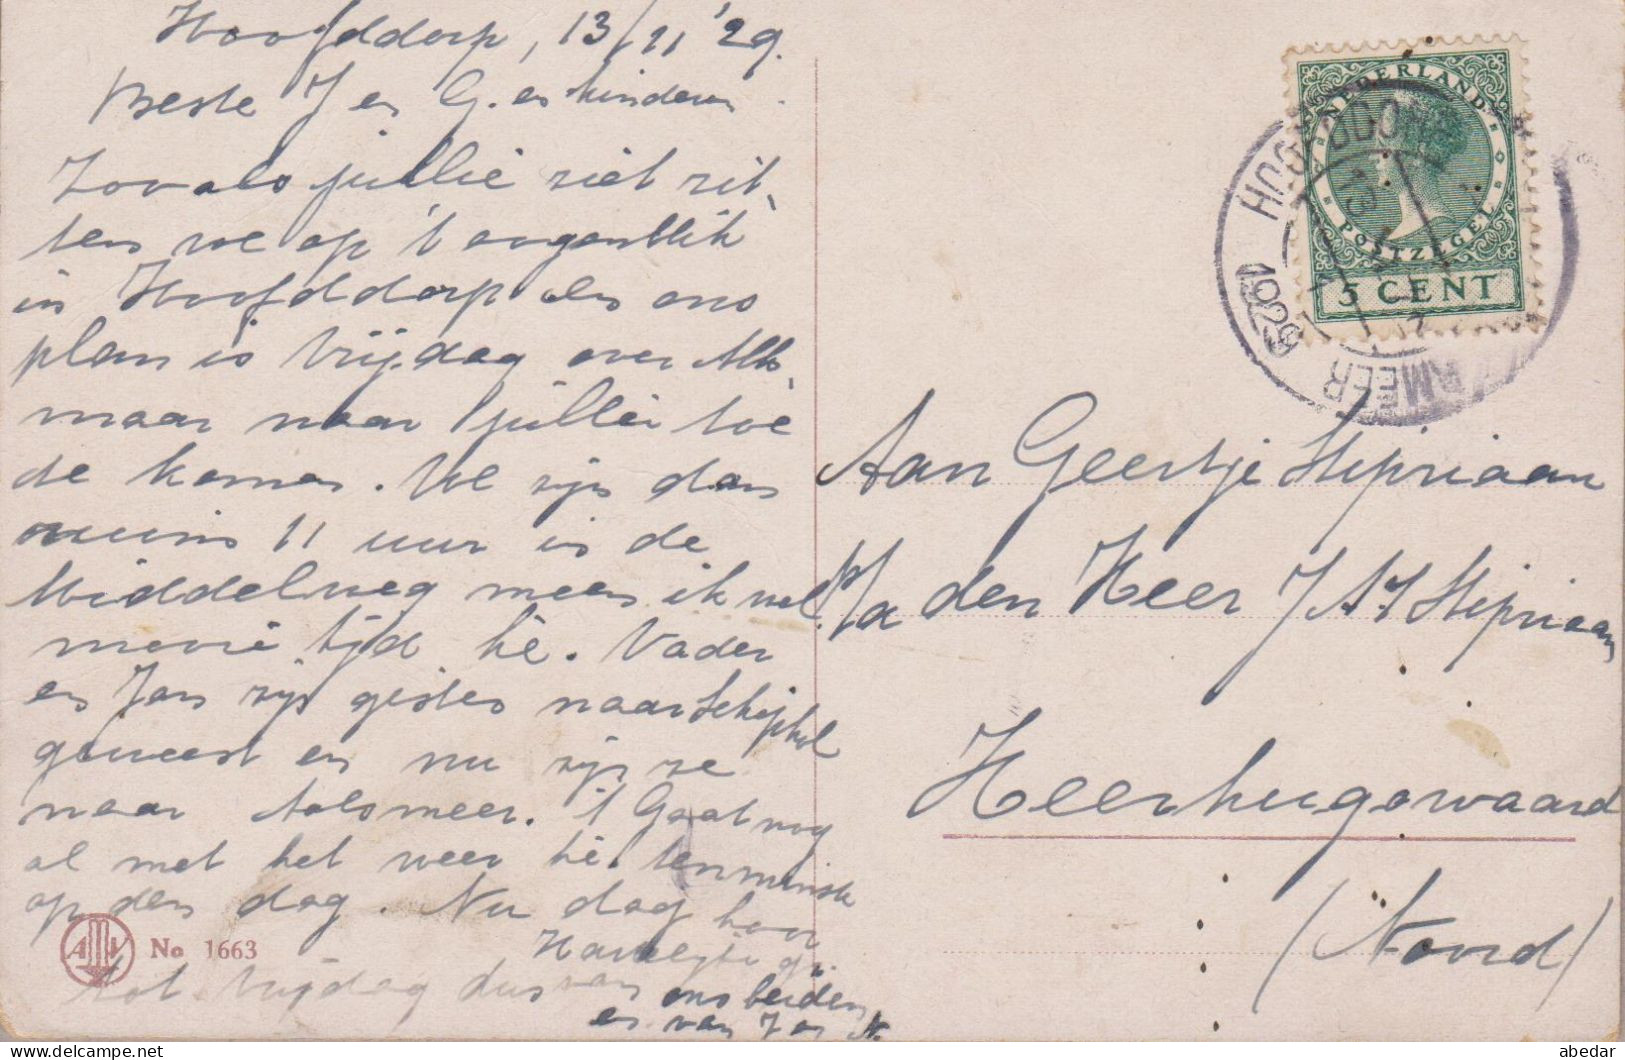 Hoofddorp, 13/11 '29.
Beste J en G. en kinderen
Zooals jullie ziet zit-
ten we op 't oogenblik
in Hoofddorp en ons
plan is Vrijdag over Alk-
maar naar jullie toe
de komen. We zijn dan
ruim 11 uur in de
Middelweg meen ik wel.
mooie tijd hè. Vader
en Jan zijn gisten naar Schiphol
geweest en nu zijn ze
naar Aalsmeer. 't Gaat nog
al met het weer hè. tenminste
op den dag. Nu dag hoor
Hartelijke gr.
tot Vrijdag dus van ons beiden
en van Jan N.
AMV No 1663
NEDERLAND
POSTZEGEL
5 CENT
HOOFDDORP
13
1929
MEER
Aan Geertje Stipriaan
p/a den Heer J A J Stipriaan
Heerhugowaard
(Noord)
abedar